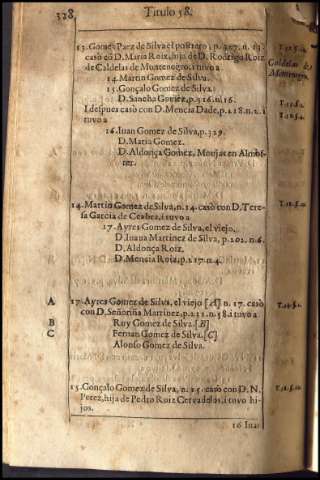 328 Titulo 58.
13. Gomes Paez de Silva el postrero, n. 307. n. 13.
casò cõ D. Maria Roiz, hija de D. Rodrigo Roiz
de Caldelas de Montenegro, i tuvo a
14. Martin Gomez de Silva.
15. Gonçalo Gomez de Silva.
D. Sancha Gomez, p. 316. n. 16.
I despues casò con D. Mencia Dade, p. 218. n. 2. i
tuvo a
16. Iuan Gomez de Silva, p. 329.
D. Maria Gomez.
D. Aldonça Gomez, Monja en Almos-
ter.
Caldelas de
Montenegro.
14. Martin Gomez de Silva, n. 14. casò con D. Tere-
sa Garcia de i tuvo a
17. Ayres Gomez de Silva, el viejo.
D. Iuana Martinez de Silva, p. 202. n. 6.
D. Aldonça Roiz.
D. Mencia Roiz, p. 217. n. 4.
A 17. Ayres Gomez de Silva, el viejo [A] n. 17. casò
con D. Señoriña Martinez, p. 211. n. 38. i tuvo a
B Ruy Gomez de Silva. [B]
C Fernan Gomez de Silva. [C]
Alonso Gomez de Silva.
15. Gonçalo Gomez de Silva, n. 15. casò con D. N.
Perez, hija de Pedro Roiz Cervadelos, i tuvo hi-
jos.
16 Iua: